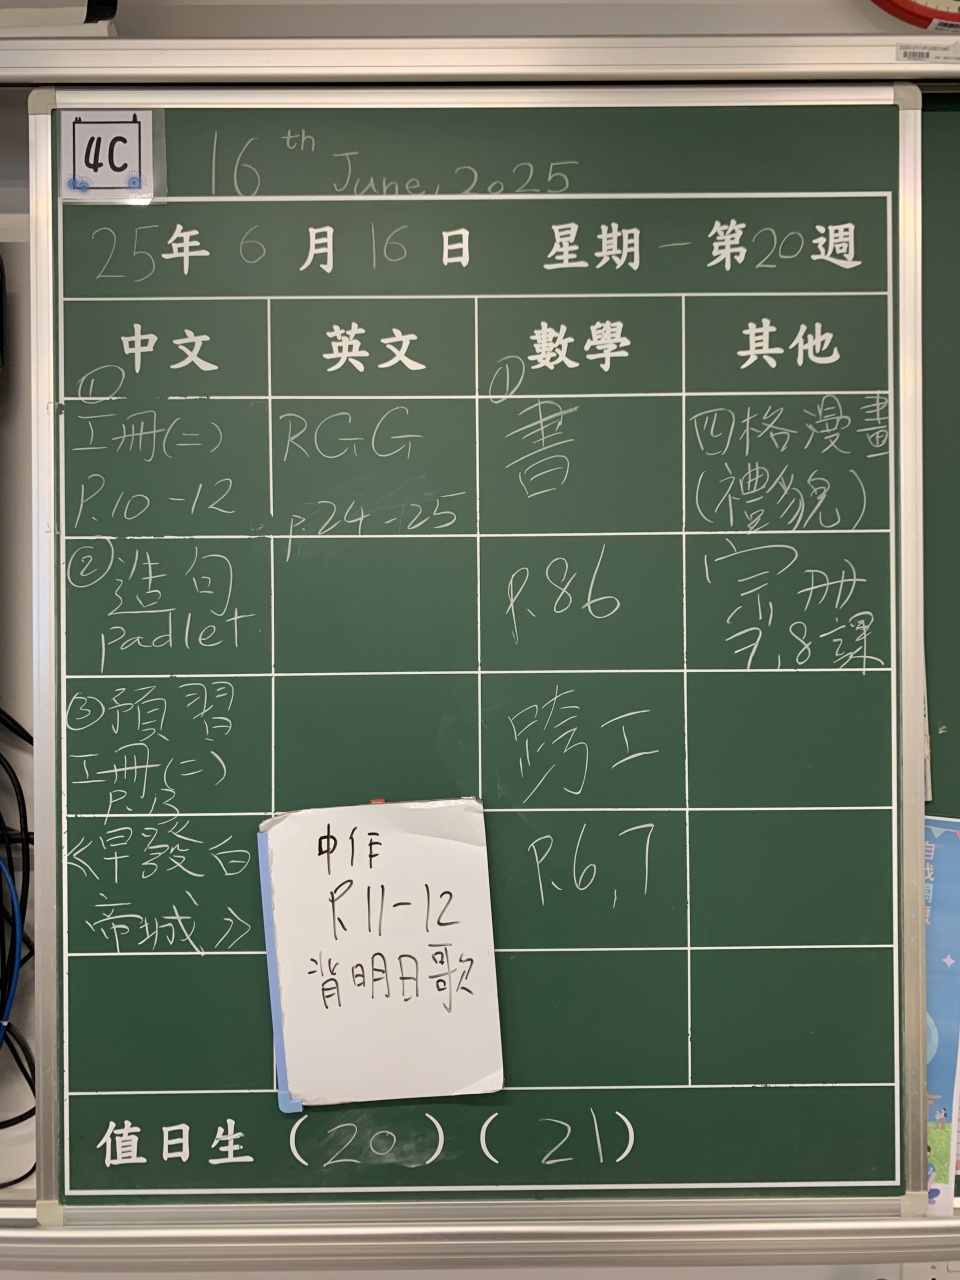 4C
16th June, 2025
25年 6月 16日 星期一 第20週
中文 英文 數學 其他
① 工冊(二)
P.10-12
RGG
P.24-25
① 書
四格漫畫
(禮貌)
② 造句
padlet
P.86
宗冊
7,8課
③ 預習
工冊(二)
P.13
跨工
《早發白
帝城》
P.6,7
中作
P.11-12
背明日歌
值日生 (20)(21)